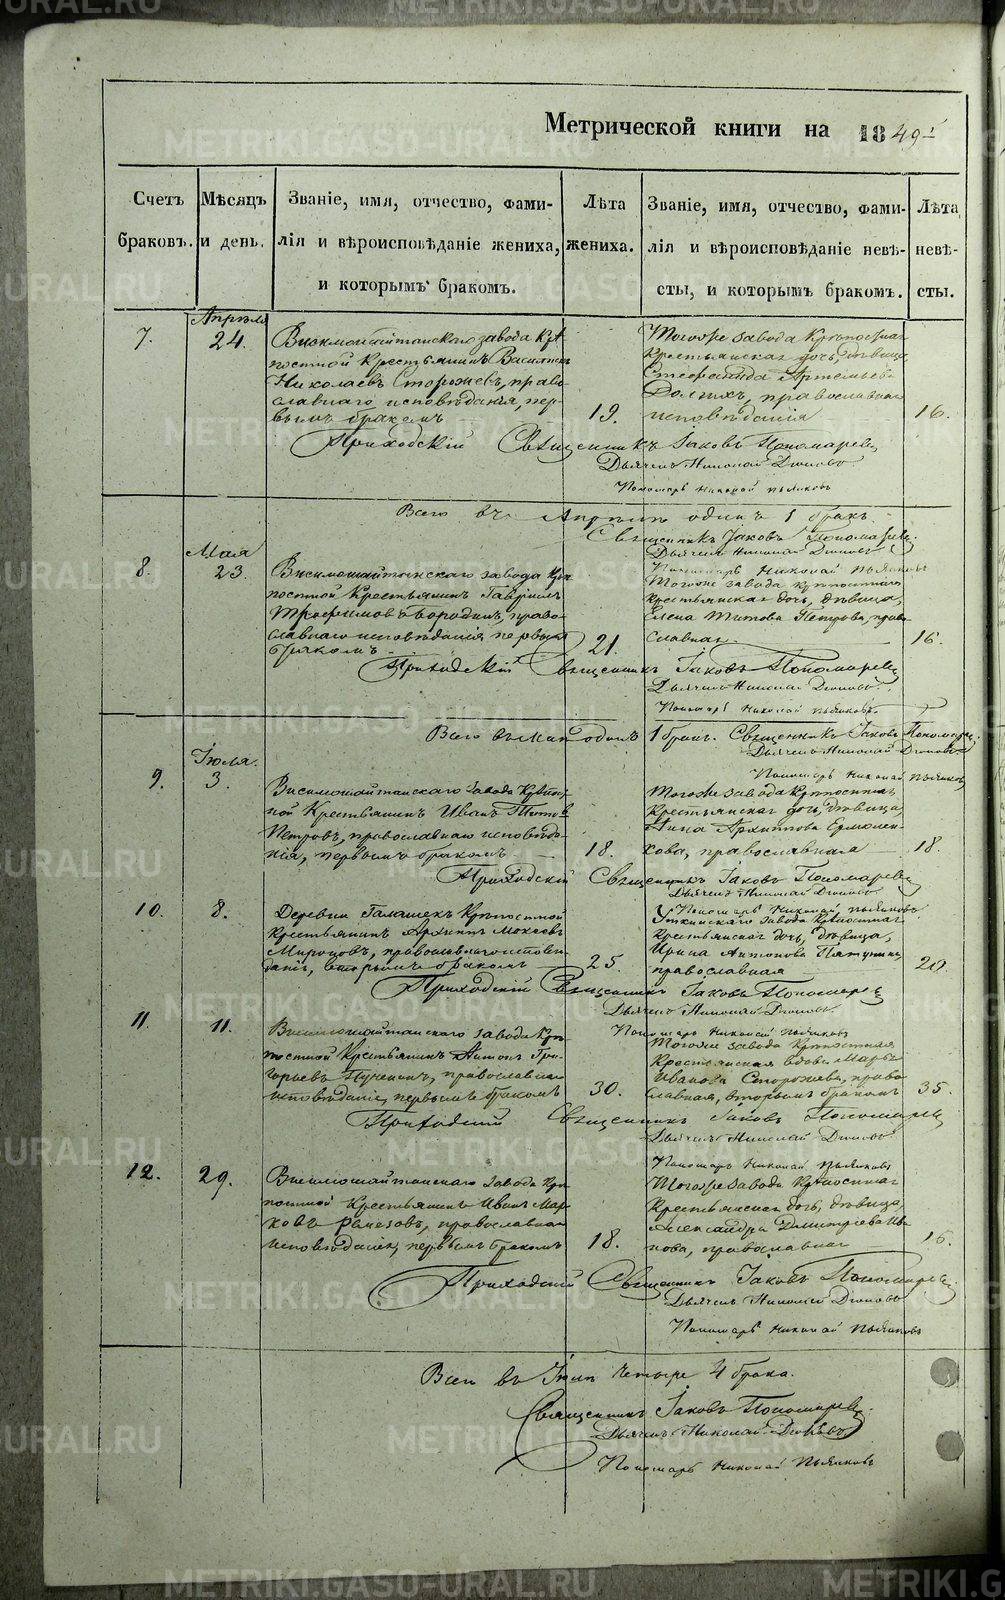 Метрической книги на 1849 г.
Счетъ браковъ.
Мѣсяцъ и день.
Званіе, имя, отчество, фами-
лія и вѣроисповѣданіе жениха,
и которымъ бракомъ.
Лѣта жениха.
Званіе, имя, отчество, фами-
лія и вѣроисповѣданіе невѣ-
сты, и которымъ бракомъ.
Лѣта невѣ-
сты.
7.
Апрѣля
24.
Висимошайтанскаго завода Крѣ
постной Крестьянинъ Василій
Николаевъ Сторожевъ, право
славнаго исповѣданія, пер
вымъ бракомъ
19.
Тогоже завода Крѣпостная
Крестьянская дочь, дѣвица,
Стефанида Артемьева
Долгихъ, православнаго
исповѣданія
16.
Приходскій Священникъ Іаковъ Пономаревъ
Дьячекъ Николай
Пономарь Николай Пьянковъ
Всего въ Апрѣлѣ одинъ 1 бракъ.
Священникъ Іаковъ Пономаревъ.
Дьячекъ Николай
Пономарь Николай Пьянковъ
8.
Мая
23.
Висимошайтанскаго завода Крѣ
постной Крестьянинъ Гавріилъ
Трофимовъ Бородинъ, право
славнаго исповѣданія, первымъ
бракомъ
21.
Тогоже завода Крѣпостнаго
Крестьянская дочь, дѣвица,
Елена Титова Петрова, право
славная
16.
Приходскій Священникъ Іаковъ Пономаревъ
Дьячекъ Николай
Пономарь Николай Пьянковъ.
Всего въ Маѣ одинъ 1 бракъ. Священникъ Іаковъ Пономаревъ.
Дьячекъ Николай
Пономарь Николай Пьянковъ
9.
Іюля.
3.
Висимошайтанскаго завода Крѣпост
ной Крестьянинъ Иванъ Титовъ
Петровъ, православнаго исповѣда
нія, первымъ бракомъ
18.
Тогоже завода Крѣпостная
Крестьянская дочь, дѣвица,
Анна Архиппова Ермолен
кова, православная
18.
Приходскій Священникъ Іаковъ Пономаревъ
Дьячекъ Николай
Пономарь Николай Пьянковъ
10.
8.
Деревни Галашекъ Крѣпостной
Крестьянинъ Архипъ
православнаго исповѣ
данія, вторымъ бракомъ
25.
Уткинскаго завода Крѣпостная
Крестьянская дочь, дѣвица,
Ирина Антонова
православная
20.
Приходскій Священникъ Іаковъ Пономаревъ
Дьячекъ Николай
Пономарь Николай Пьянковъ
11.
11.
Висимошайтанскаго завода Крѣ
постной Крестьянинъ Антонъ Гри
горьевъ православнаго
исповѣданія, первымъ бракомъ
30.
Тогоже завода Крѣпостная
Крестьянская вдова Марья
Иванова Сторожева, право
славная, вторымъ бракомъ
35.
Приходскій Священникъ Іаковъ Пономаревъ
Дьячекъ Николай
Пономарь Николай Пьянковъ
12.
29.
Висимошайтанскаго завода Крѣ
постной Крестьянинъ Иванъ Мар
ковъ православнаго
исповѣданія, первымъ бракомъ
18.
Тогоже завода Крѣпостная
Крестьянская дочь, дѣвица,
Александра Димитріева Ива
нова, православная
16.
Приходскій Священникъ Іаковъ Пономаревъ.
Дьячекъ Николай
Пономарь Николай Пьянковъ
Всего въ Іюлѣ четыре 4 брака.
Священникъ Іаковъ Пономаревъ.
Дьячекъ Николай
Пономарь Николай Пьянковъ
METRIKI.GASO-URAL.RU